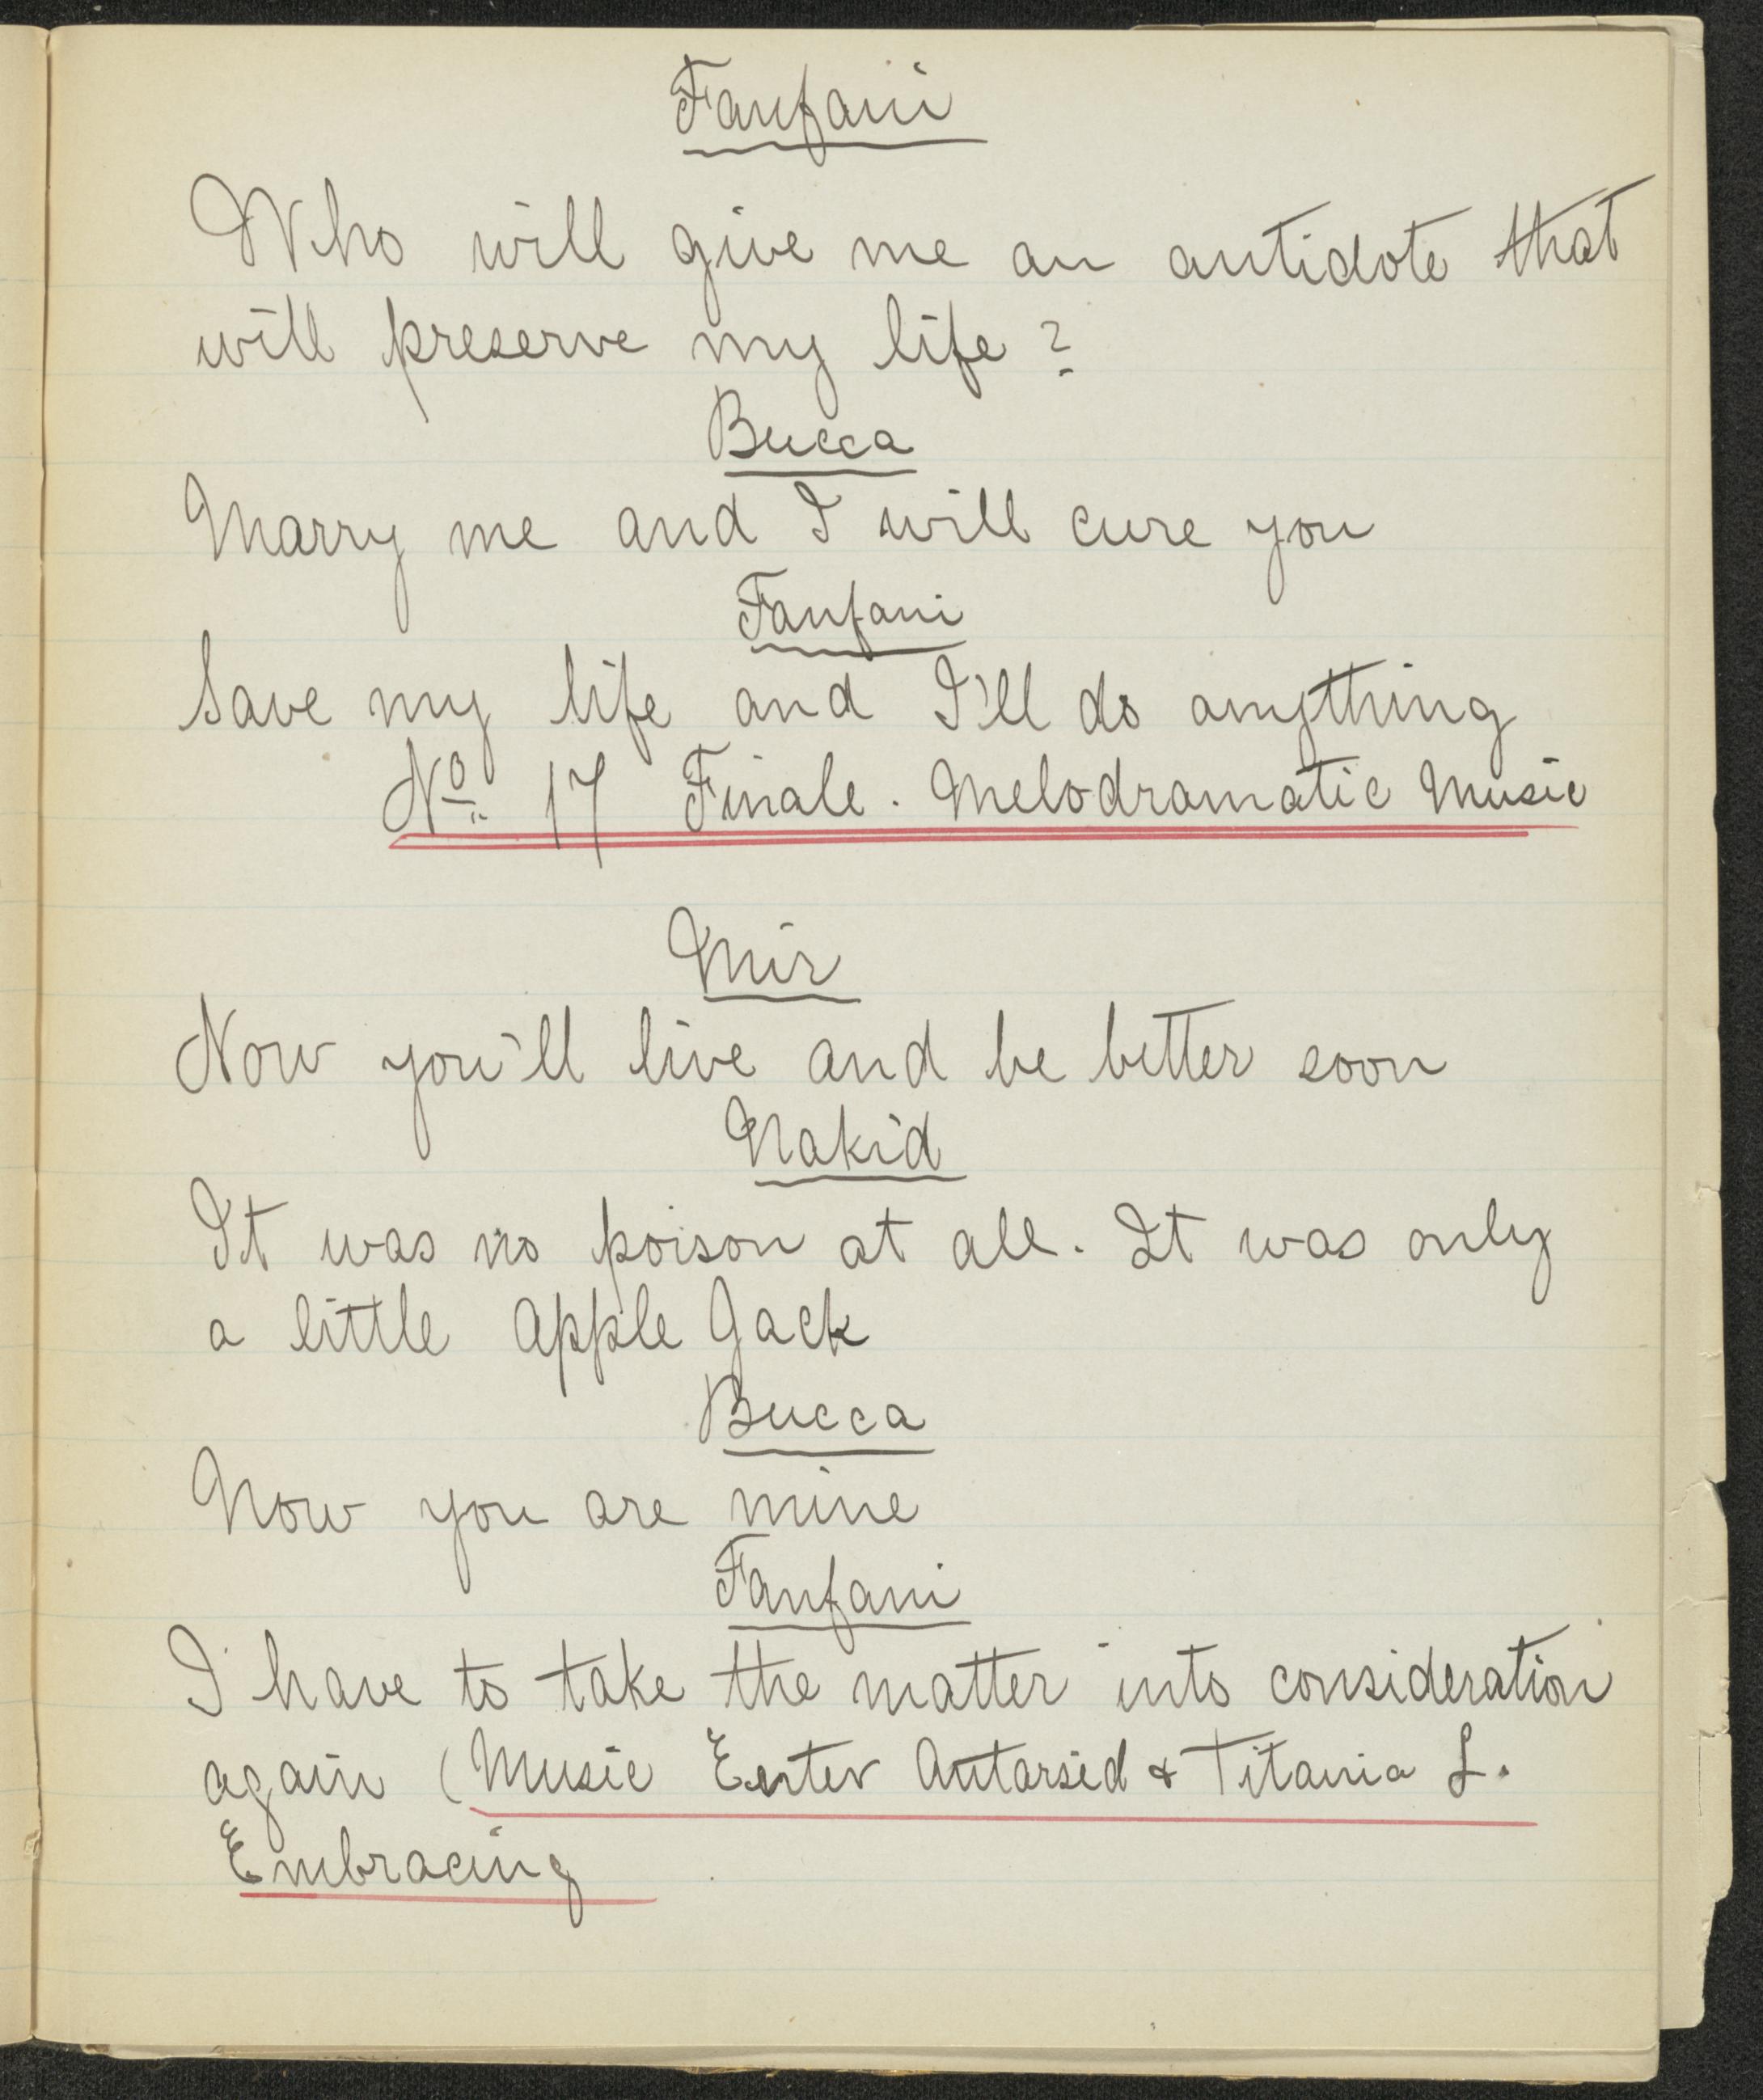 Fanfani
Who will give me an antidote that
will preserve my life?
Bucca
Marry me and I will cure you
Fanfani
Save my life and I'll do anything
No. 17 Finale. Melodramatic Music
Mir
Now you'll live and be better soon
Nakid
It was no poison at all. It was only
a little Apple Jack
Bucca
Now you are mine
Fanfani
I have to take the matter into consideration
again (Music Enter Antarsid & Titania L.
Embracing